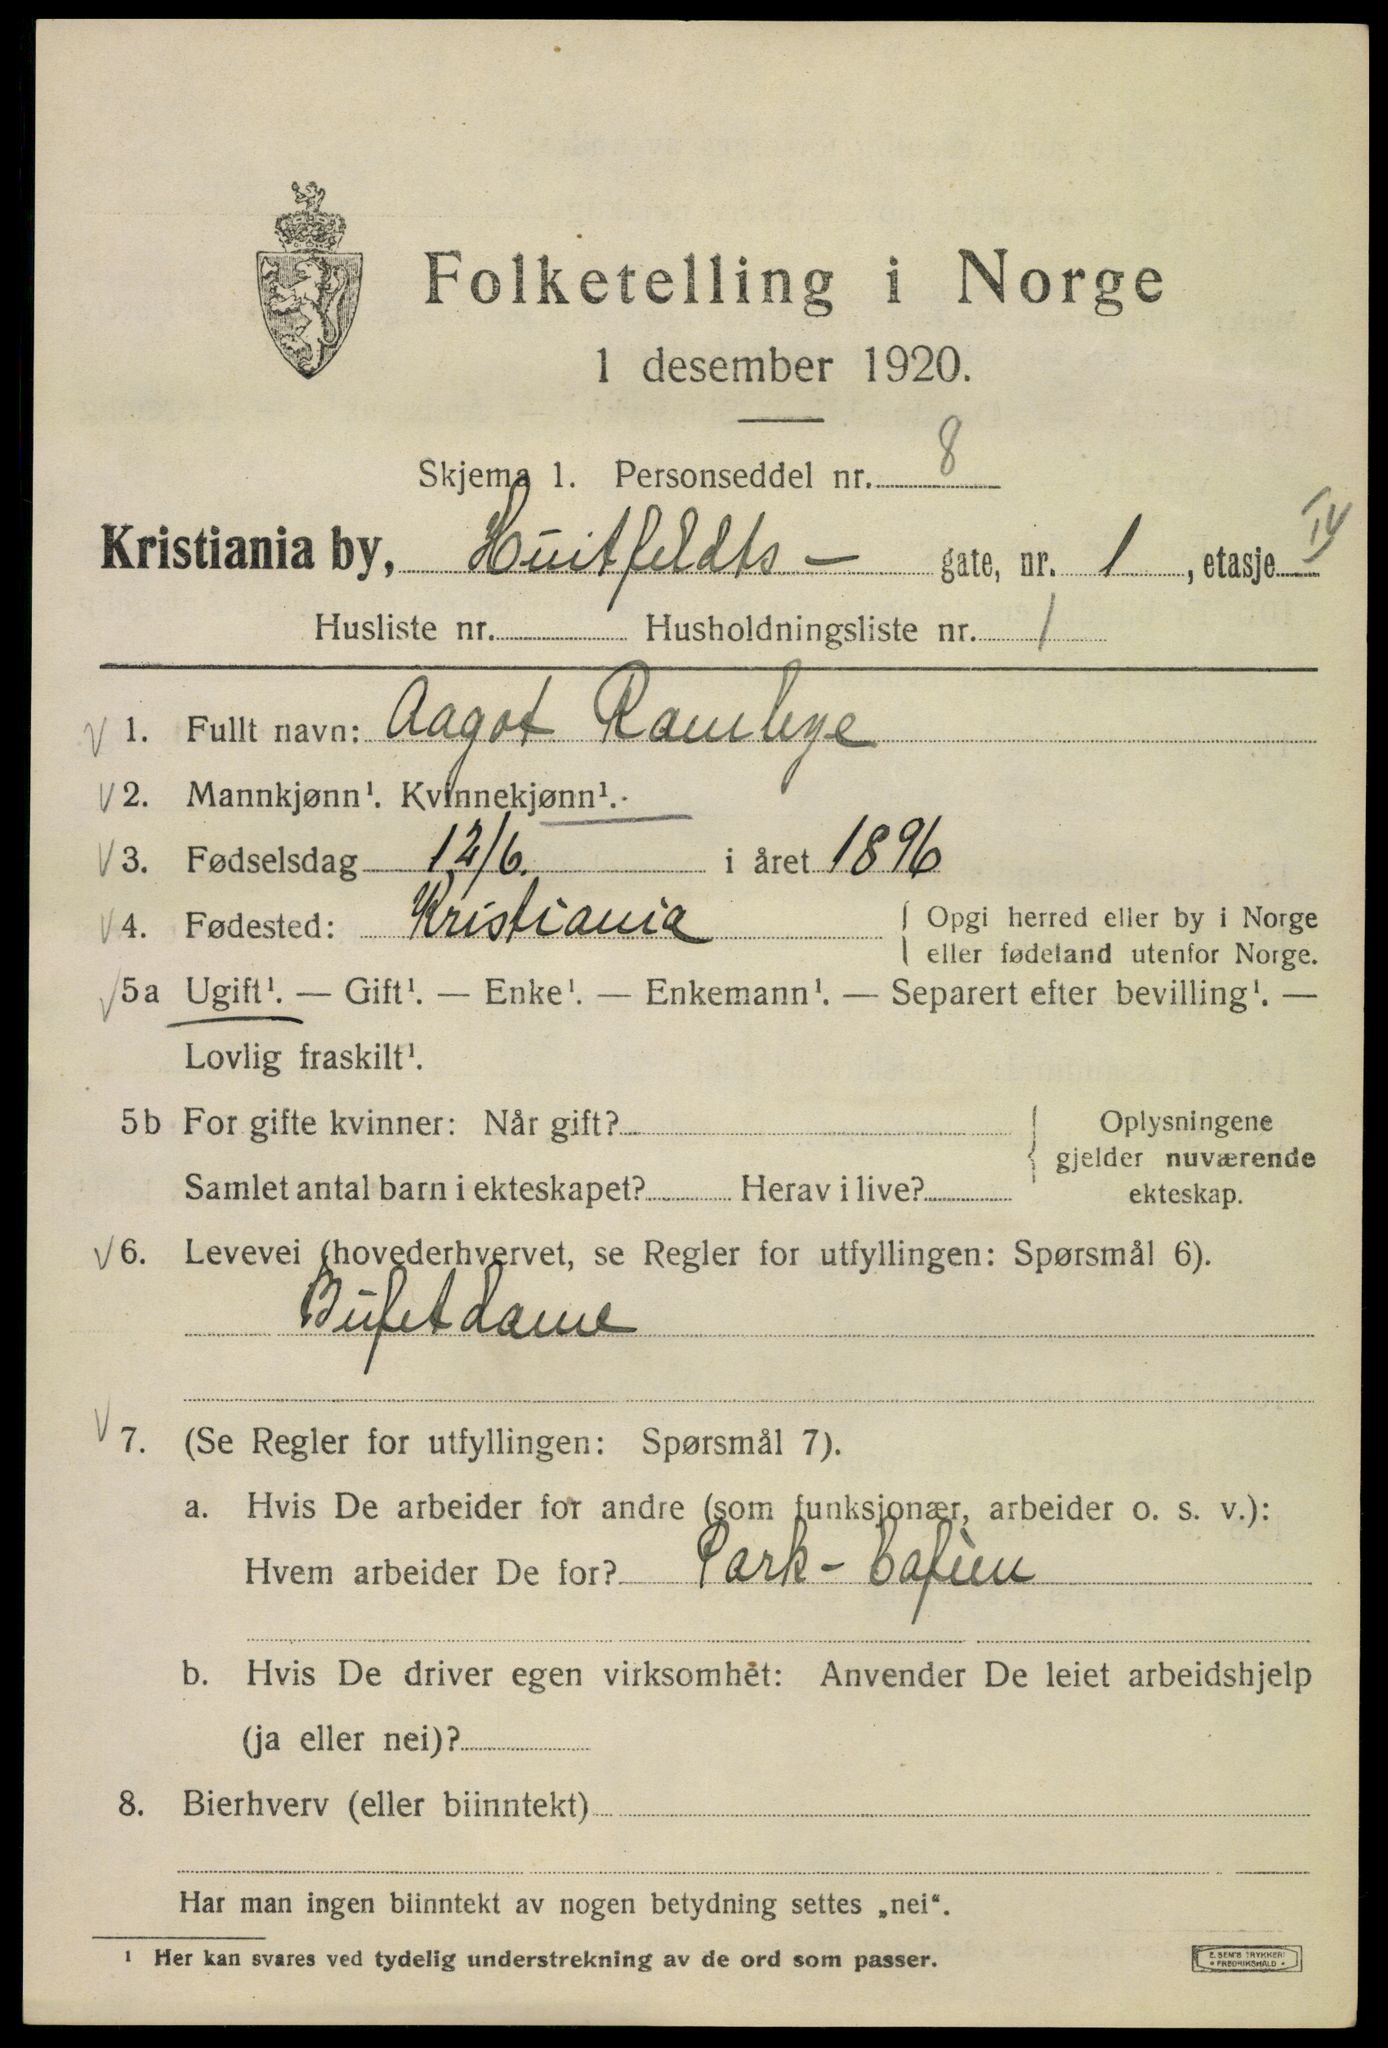 Folketelling i Norge
1 desember 1920.
Skjema 1. Personseddel nr. 8
Kristiania by, Huitfeldts- gate, nr. 1, etasje IV
Husliste nr. Husholdningsliste nr. 1
V 1. Fullt navn: Aagot
V 2. Mannkjønn¹. Kvinnekjønn¹.
V 3. Fødselsdag 12/6. i året 1896
V 4. Fødested: Kristiania { Opgi herred eller by i Norge
eller fødeland utenfor Norge.
V 5a Ugift¹. — Gift¹. — Enke¹. — Enkemann¹. — Separert efter bevilling¹. —
Lovlig fraskilt¹.
5b For gifte kvinner: Når gift? { Oplysningene
gjelder nuværende
Samlet antal barn i ekteskapet? Herav i live? ekteskap.
V 6. Levevei (hovederhvervet, se Regler for utfyllingen: Spørsmål 6).
Bufetdame
V 7. (Se Regler for utfyllingen: Spørsmål 7).
a. Hvis De arbeider for andre (som funksjonær, arbeider o. s. v.):
Hvem arbeider De for? Park-Cafeen
b. Hvis De driver egen virksomhet: Anvender De leiet arbeidshjelp
(ja eller nei)?
8. Bierhverv (eller biinntekt)
Har man ingen biinntekt av nogen betydning settes „nei“.
¹ Her kan svares ved tydelig understrekning av de ord som passer.
E. SEM'S TRYKKERI
• FREDRIKSHALD •